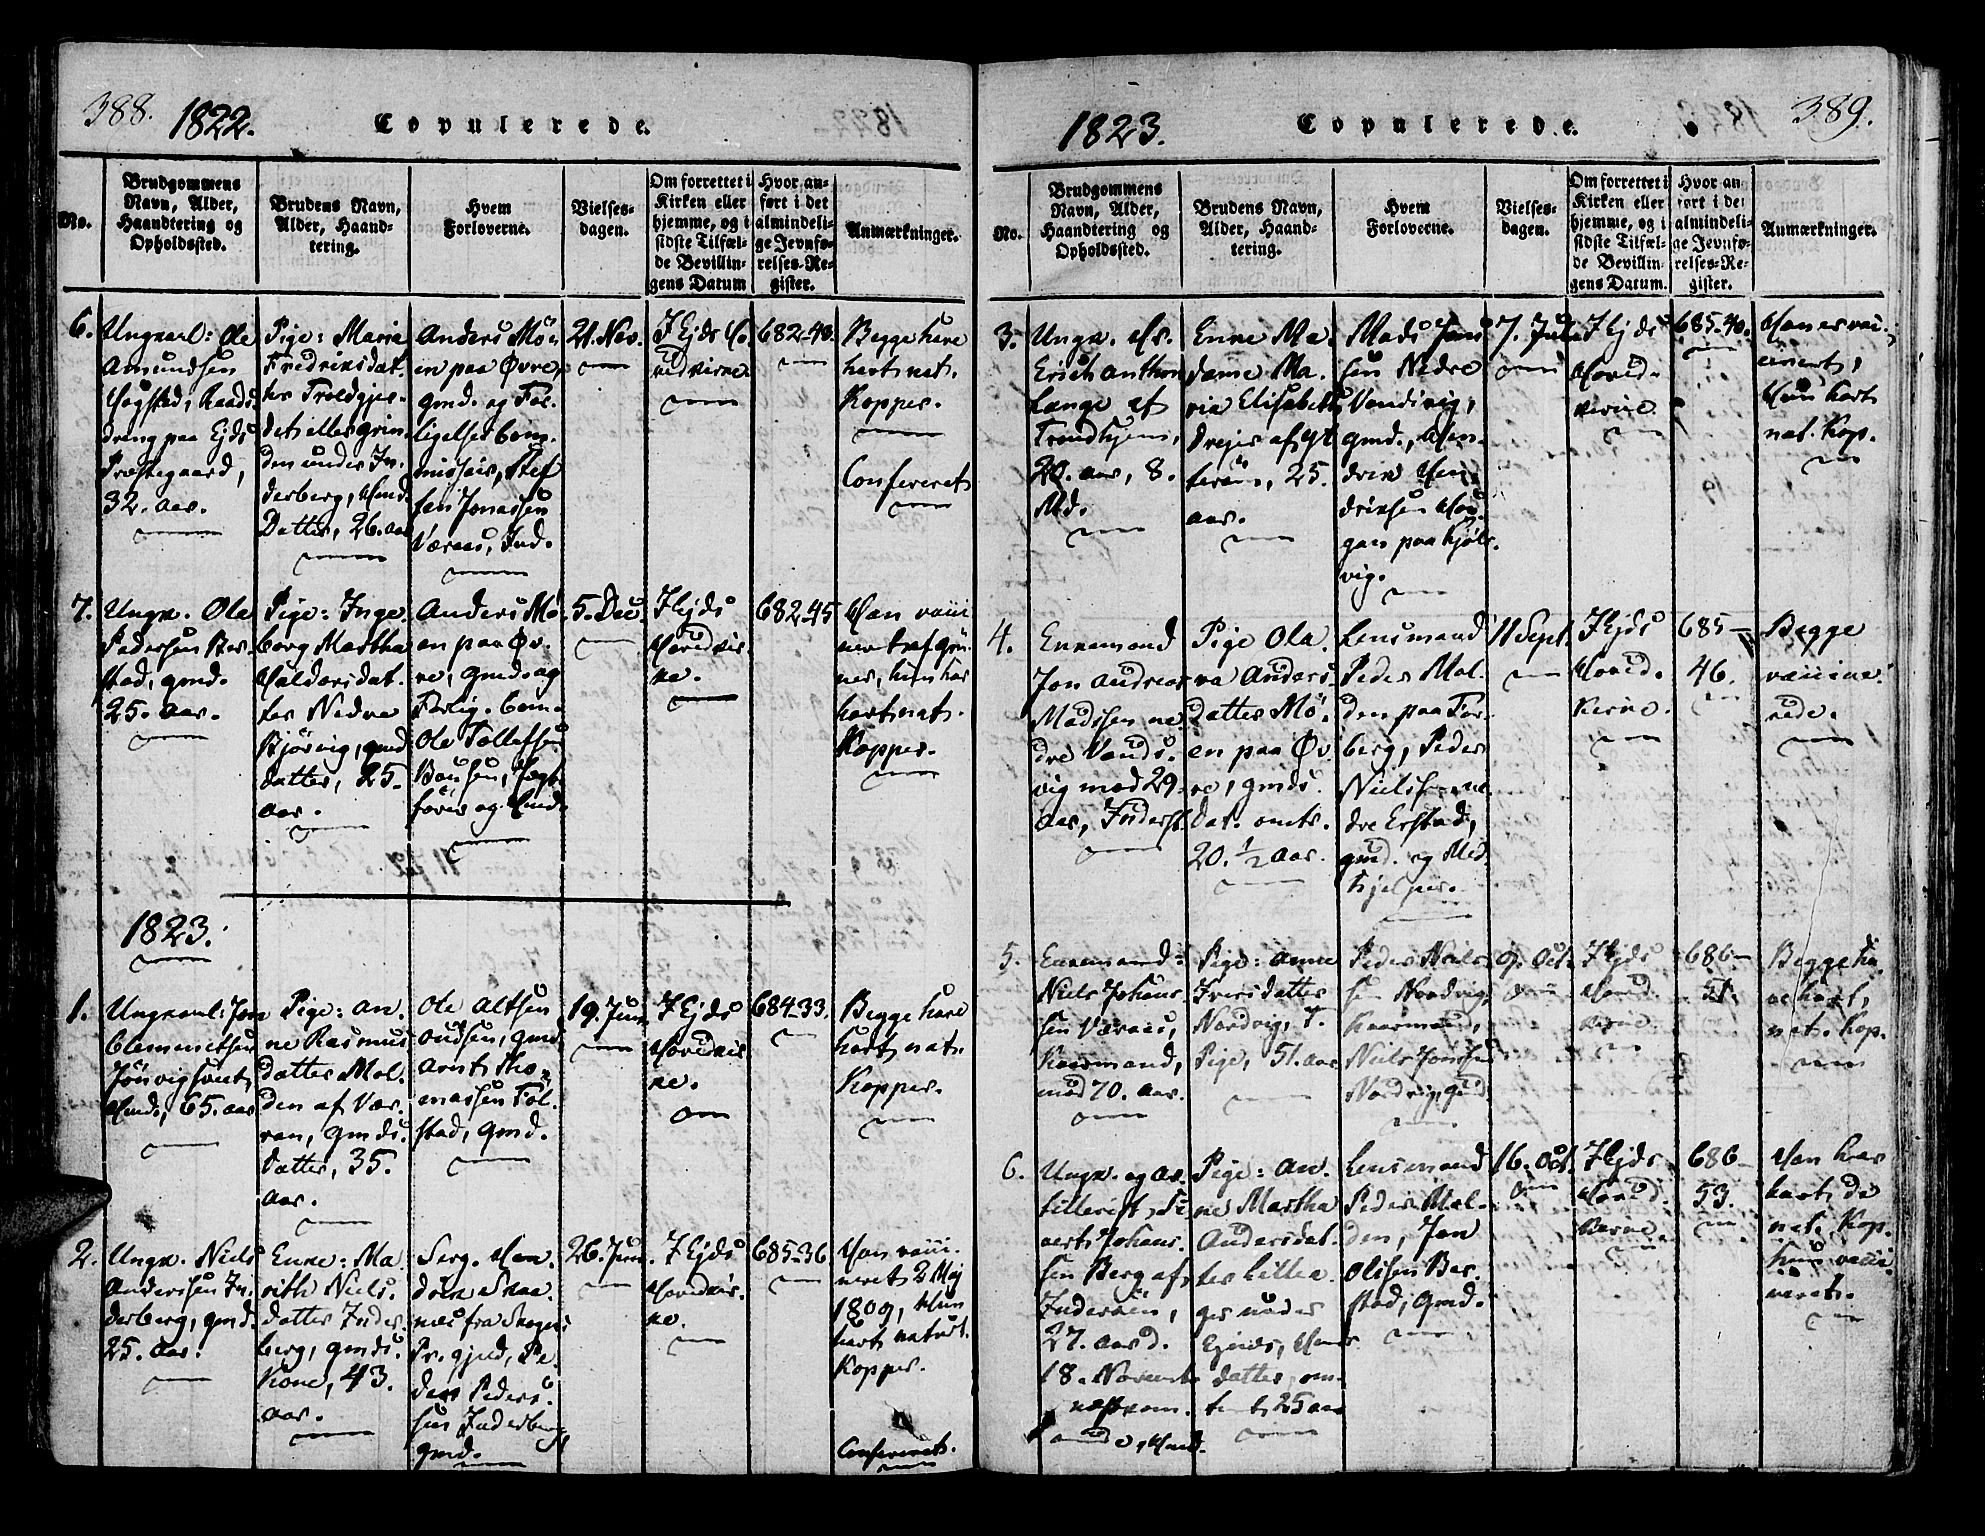 388. 1822. Copulerede.
No.
Brudgommens
Navn, Alder,
Haandtering og
Opholdssted.
Brudens Navn,
Alder, Haand-
tering.
Hvem
Forloverne.
Vielses-
dagen.
Om forrettet i
Kirken eller
hjemme, og i
sidste Tilfæl-
de Bevillin-
gens Datum
Hvor an-
ført i det
almindeli-
ge Jevnfø-
relses-Re-
gister.
Anmærkninger.
6.
Ungkarl: Ole
Amundsen
Hogstad, Gaards
dreng paa Ejds
Præstegaard,
32. Aar.
Pige: Maria
Fredriksdat.
ter Troldgjer-
det
den under In-
derberg, Hmd.
Datter, 26. Aar
Anders Mö-
en paa Øvre,
gmd. og For-
ligelses Com-
missair, Stef
fen Jonassen
Væraas, Ind.
21. Nov.
I Ejds Ho
vedkirke.
682-43.
Begge have
havt nat.
Kopper.
Confereret
7.
Ungk. Ole
Pedersen Ber-
stad, gmd.
25. Aar.
Pige: Inge-
borg Martha
Haldorsdat.
ter Nedre
Kjösvig, gmd
datter, 25
Aar.
Anders Mö-
en paa Øv-
re, gmd. og
Forlig. Com.
Ole Tollefsen
og Hmd.
5. Dec.
I Ejds
Hovedkir
ke.
682-45
Han vacci
neret af
hun har
havt nat.
Kopper.
1823.
1.
Ungkarl: Jon
Clemmetsen
Hmd., 65. Aar
Pige: An-
ne Rasmus
datter Mol-
den af Vær-
ran, Gmds.
Datter, 35.
Aar.
Ole Altsen
gmd
Arnt Tho-
massen Föl-
stad, gmd.
19. Jun
I Ejds
Hovedkir
ke.
684-33.
Begge have
havt nat.
Kopper.
2.
Ungk. Niels
Andersen In-
derberg, gmd.
25. Aar.
Enke: Ma-
rith Niels-
datter Inder-
berg, gmds.
Kone, 43.
Aar.
Serg. Hen-
nes fra Skogns
Pr.gjeld, Pe-
der Peder-
sen Inderberg
gmd.
26. Jun.
I Ejds
Hovedkir-
ke.
685-36
Han vacci-
neret 2 Maj
1809, Hun
havt naturl.
Kopper.
Confereret.
1823. Copulerede. 389.
No.
Brudgommens
Navn, Alder,
Haandtering og
Opholdssted.
Brudens Navn,
Alder, Haand-
tering.
Hvem
Forloverne.
Vielses-
dagen.
Om forrettet i
Kirken eller
hjemme, og i
sidste Tilfæl-
de Bevillin-
gens Datum.
Hvor an
ført i det
almindeli-
ge Jevnfø-
relses-Re-
gister.
Anmærkninger.
3.
Ungk. Hr.
Erich Anthon
Lange af
Trondhjem,
20. Aar, 8.
Md.
Enke Ma-
dame Ma-
ria Elisabeth
Drejer af Yt
teröen, 25.
Aar.
Mads Jen
sen Nedre
Vandvig,
gmd., Hen-
drik Hen
driksen
paa Kjöls-
vig.
7. Jul
I Ejds
Hoved-
kirke
685-40.
Han er vac-
cineret,
Hun havt
nat. Kop.
4.
Enkemand
Jon Andreas
Madssen ne
dre Vands-
vig med 29
Aar, Indersk.
Pige Ole-
va Anders-
Datter Mö-
en paa Øv-
re, gmds.
Dat. omtr.
20. 1/2 Aar.
Lensmand
Peder Mol-
den paa For-
berg, Peder
Nielsen ne
dre Erstad,
gmd. og Med
hjelper.
11 Sept.
I Ejds
Hoved-
kirke.
685-
46.
Begge
vaccine-
rede.
5.
Enkemand:
Niels Johan-
sen Væraas,
Kaarmand,
med 70. Aar.
Pige: Anne
Iversdatter
Nordvig, T.
Pige, 51. Aar
Peder Niel-
sen Nordvig,
Kaarmand,
Niels Jonsen
Nordvig, gmd
9. Oct.
I Ejds
Hoved-
kirke
686-
51.
Begge ha-
ve havt
nat. Kop.
6.
Ungk. og Ar-
tillerist, Si-
vert Johan-
sen Berg af
Inderöen,
27. Aar d.
18. Novemb
næstkom-
mende, Hmd.
Pige: An-
ne Martha
Andersdat-
ter Lillea-
ger under
Ejnds, Hmds
datter, om-
trent 25 Aar
Lensmand
Peder Mol-
den, Jon
Olsen Ber-
stad, gmd.
16. Oct.
I Ejds
Hoved-
kirke
686-
53.
Han har
havt de
nat. Kop.
hun vacci-
neret.